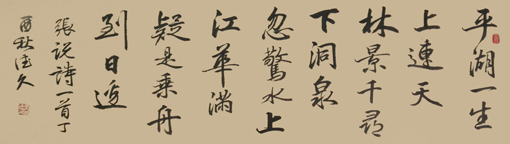 平湖一生
上連天
林景千尋
下洞泉
忽驚水上
江華滿
疑是乘舟
到日邊
張說詩一首丁
酉秋佳久